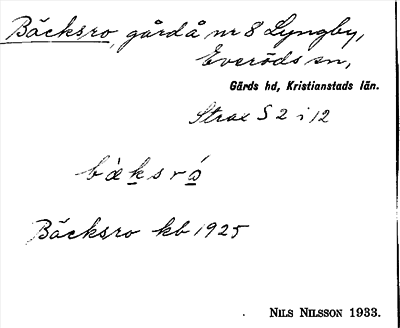 Bäcksro, gård å nr 8 Lyngby,
Everöds sn,
Gärds hd, Kristianstads län.
Strax S 2 i 12
bàksró
Bäcksro kb 1925
NILS NILSSON 1933.